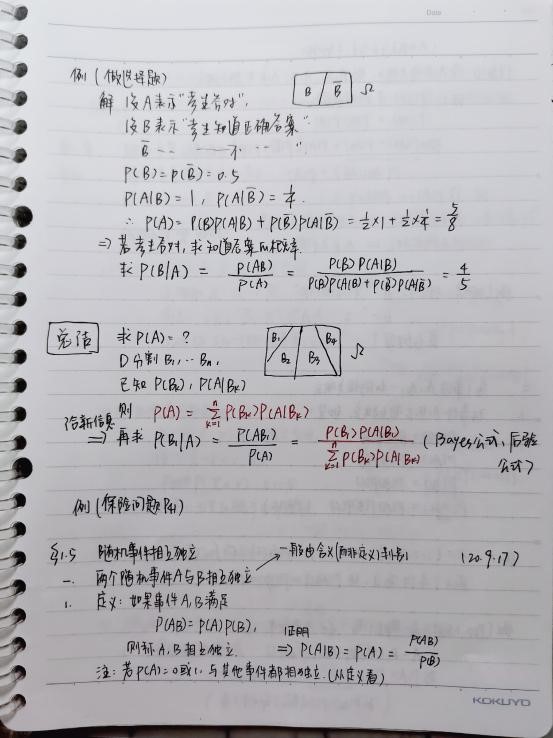 Date
例(做选择题)
解 设A表示"考生答对",
B B̄ Ω
设B表示"考生知道正确答案"
B̄ -- —— 不 -- "
P(B)=P(B̄)=0.5
P(A|B)=1, P(A|B̄)=1/4.
∴ P(A)=P(B)P(A|B)+P(B̄)P(A|B̄)=1/2×1+1/2×1/4=5/8
⇒ 若考生答对,求知道答案的概率.
求P(B|A) = P(AB)/P(A) = P(B)P(A|B)/P(B)P(A|B)+P(B̄)P(A|B̄) = 4/5
总结 求P(A)=?
B₁ B₂ B₃ B₄ Ω
①分割B₁,…Bₙ,
已知P(Bₖ), P(A|Bₖ)
则 P(A)=∑ₖ₌₁ⁿ P(Bₖ)P(A|Bₖ)
给新信息
⇒ 再求P(B₁|A) = P(AB₁)/P(A) = P(B₁)P(A|B₁)/∑ₖ₌₁ⁿ P(Bₖ)P(A|Bₖ) (Bayes公式,后验
公式)
例(保险问题P41)
§1.5 随机事件相互独立
一般由含义(而非定义)判断
(20.9.17)
一. 两个随机事件A与B相互独立
1. 定义:如果事件A,B满足
P(AB)=P(A)P(B),
则称A,B相互独立.
证明
⇒ P(A|B)=P(A)=P(AB)/P(B)
注:若P(A)=0或1,与其他事件都相互独立.(从定义看)
KOKUYO